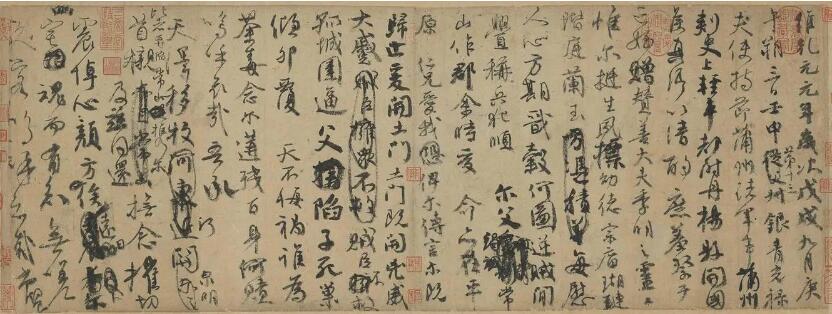 維乾元元年歲次戊戌九月庚
午朔三日壬申第十三叔從父銀青光祿
夫使持節蒲州諸軍事蒲州
刺史上輕車都尉丹楊縣開國
侯真卿以清酌庶羞祭于
亡姪贈贊善大夫季明之靈曰
惟爾挺生夙標幼德宗廟瑚璉
階庭蘭玉每慰
人心方期戩穀何圖逆賊閒
釁稱兵犯順 爾父竭誠常
山作郡余時受 命亦在平
原 仁兄愛我俾爾傳言爾既
歸止爰開土門土門既開凶威
大蹙賊臣不救
孤城圍逼父陷子死巢
傾卵覆 天不悔禍誰為
荼毒念爾遘殘百身何贖
嗚呼哀哉吾承
天澤移牧河關泉明
比者再陷常山攜爾
首櫬及茲同還撫念摧切
震悼心顏方俟遠日
卜爾幽宅魂而有知無嗟
久客嗚呼哀哉尚饗